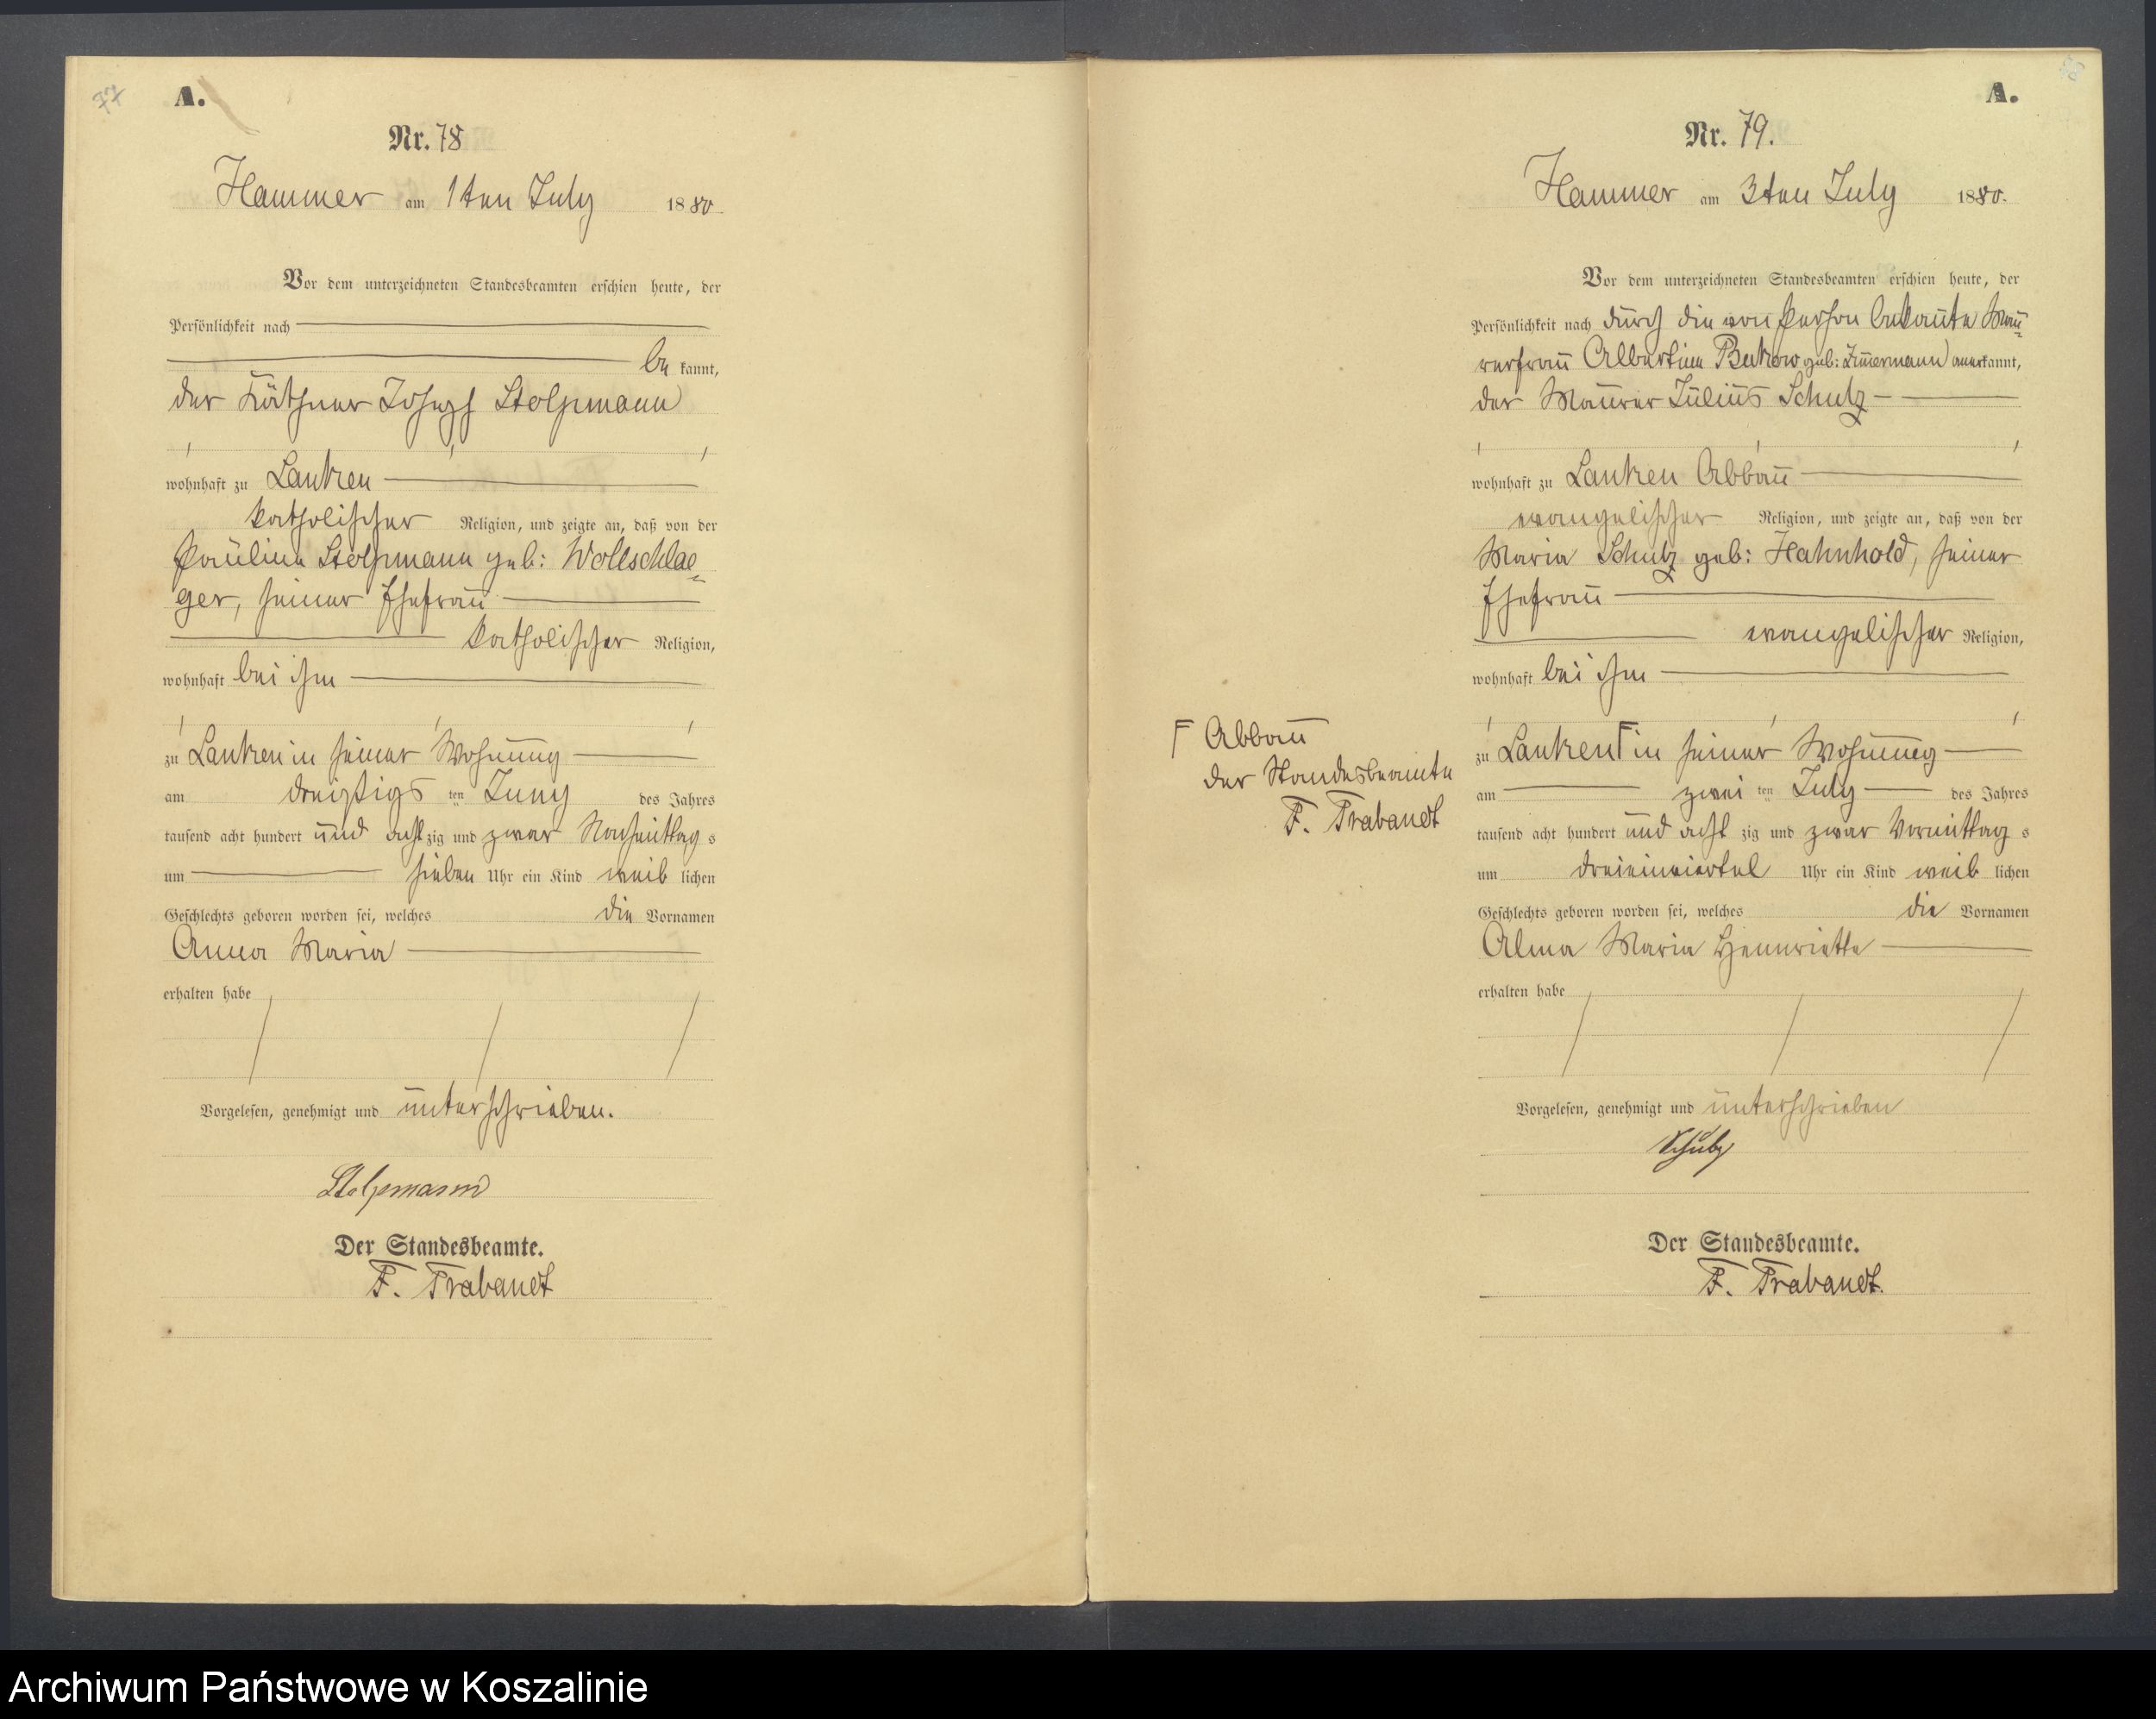 77
A.
Nr. 78
Hammer am 1ten July 1880.
Vor dem unterzeichneten Standesbeamten erschien heute, der
Persönlichkeit nach
be kannt,
der Käthner Joseph Stolpmann
wohnhaft zu Lanken
katholischer Religion, und zeigte an, daß von der
Pauline Stolpmann geb: Wollschlae=
ger, seiner Ehefrau
katholischer Religion,
wohnhaft bei ihm
zu Lanken in seiner Wohnung
am dreißigs ten Juny des Jahres
tausend acht hundert und acht zig und zwar Nachmittag s
um sieben Uhr ein Kind weib lichen
Geschlechts geboren worden sei, welches die Vornamen
Anna Maria
erhalten habe
Vorgelesen, genehmigt und unterschrieben.
Stolpmann
Der Standesbeamte.
F. Trabandt
78
A.
Nr. 79.
Hammer am 3ten July 1880.
Vor dem unterzeichneten Standesbeamten erschien heute, der
Persönlichkeit nach durch die von Person bekannte Mau=
rerfrau Albertine geb: Zimmermann anerkannt,
der Maurer Julius Schulz
wohnhaft zu Lanken Abbau
evangelischer Religion, und zeigte an, daß von der
Maria Schulz geb: Hahnhold, seiner
Ehefrau
evangelischer Religion,
wohnhaft bei ihm
zu Lanken Γ in seiner Wohnung
am zwei ten July des Jahres
tausend acht hundert und acht zig und zwar Vormittag s
um dreieinviertel Uhr ein Kind weib lichen
Geschlechts geboren worden sei, welches die Vornamen
Alma Maria Hennriette
erhalten habe
Vorgelesen, genehmigt und unterschrieben
Schulz
Der Standesbeamte.
F. Trabandt.
Γ Abbau
der Standesbeamte
F. Trabandt
Archiwum Państwowe w Koszalinie